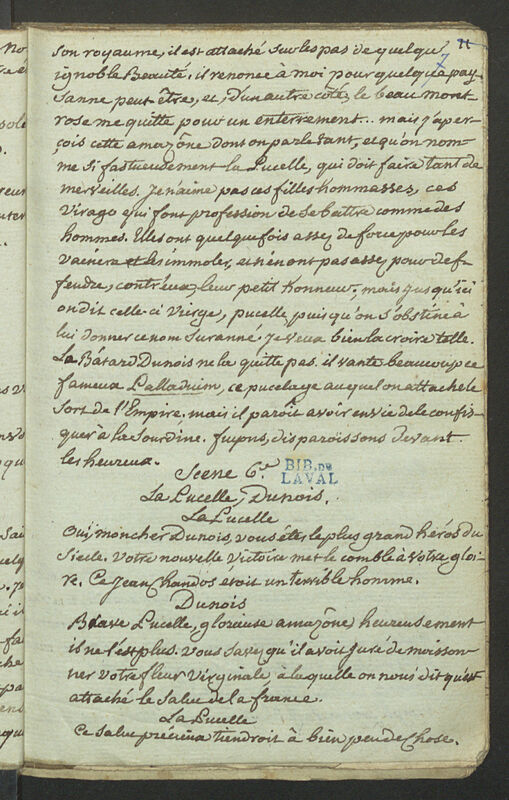 11
7
son royaume, il est attaché sur les pas de quelqu'
ignoble Beauté. il renonce à moi pour quelque pay-
sanne peut être, et, d'un autre côté, le beau mont-
rose me quitte pour un enterrement... mais j'aper-
çois cette amazône dont on parle tant, et qu'on nom-
me si fastueusement la Pucelle, qui doit faire tant de
merveilles. Je n'aime pas ces filles hommasses, ces
virago qui font profession de se battre comme des
hommes. Elles ont quelquefois assez de force pour les
vaincre et les immoler, et n'en ont pas assez pour def-
fendre, contr'eux, leur petit honneur, mais jusqu'ici
on dit celle-ci vierge, pucelle, puis qu'on s'obstine à
lui donner ce nom suranné. Je veux bien la croire telle.
Le Bâtard Dunois ne la quitte pas. il vante beaucoup ce
fameux Palladium, ce pucelage auquel on attache le
sort de l'Empire. mais il paroît avoir envie de le confis-
quer à la sourdine. fuyons, disparoissons devant
les heureux.
Scene 6.e
BIB. DE
LAVAL
La Pucelle, Dunois.
La Pucelle
Oui, mon cher Dunois, vous êtes le plus grand héros du
siecle. votre nouvelle victoire met le comble à votre gloi-
re. Ce Jean Chandos étoit un terrible homme.
Dunois
Brave Pucelle, glorieuse amazône, heureusement
il ne l'est plus. Vous savez qu'il avoit juré de moisson-
ner votre fleur virginale à laquelle on nous dit qu'est
attaché le salut de la france.
La Pucelle
Ce salut précieux tiendroit à bien peu de chose.